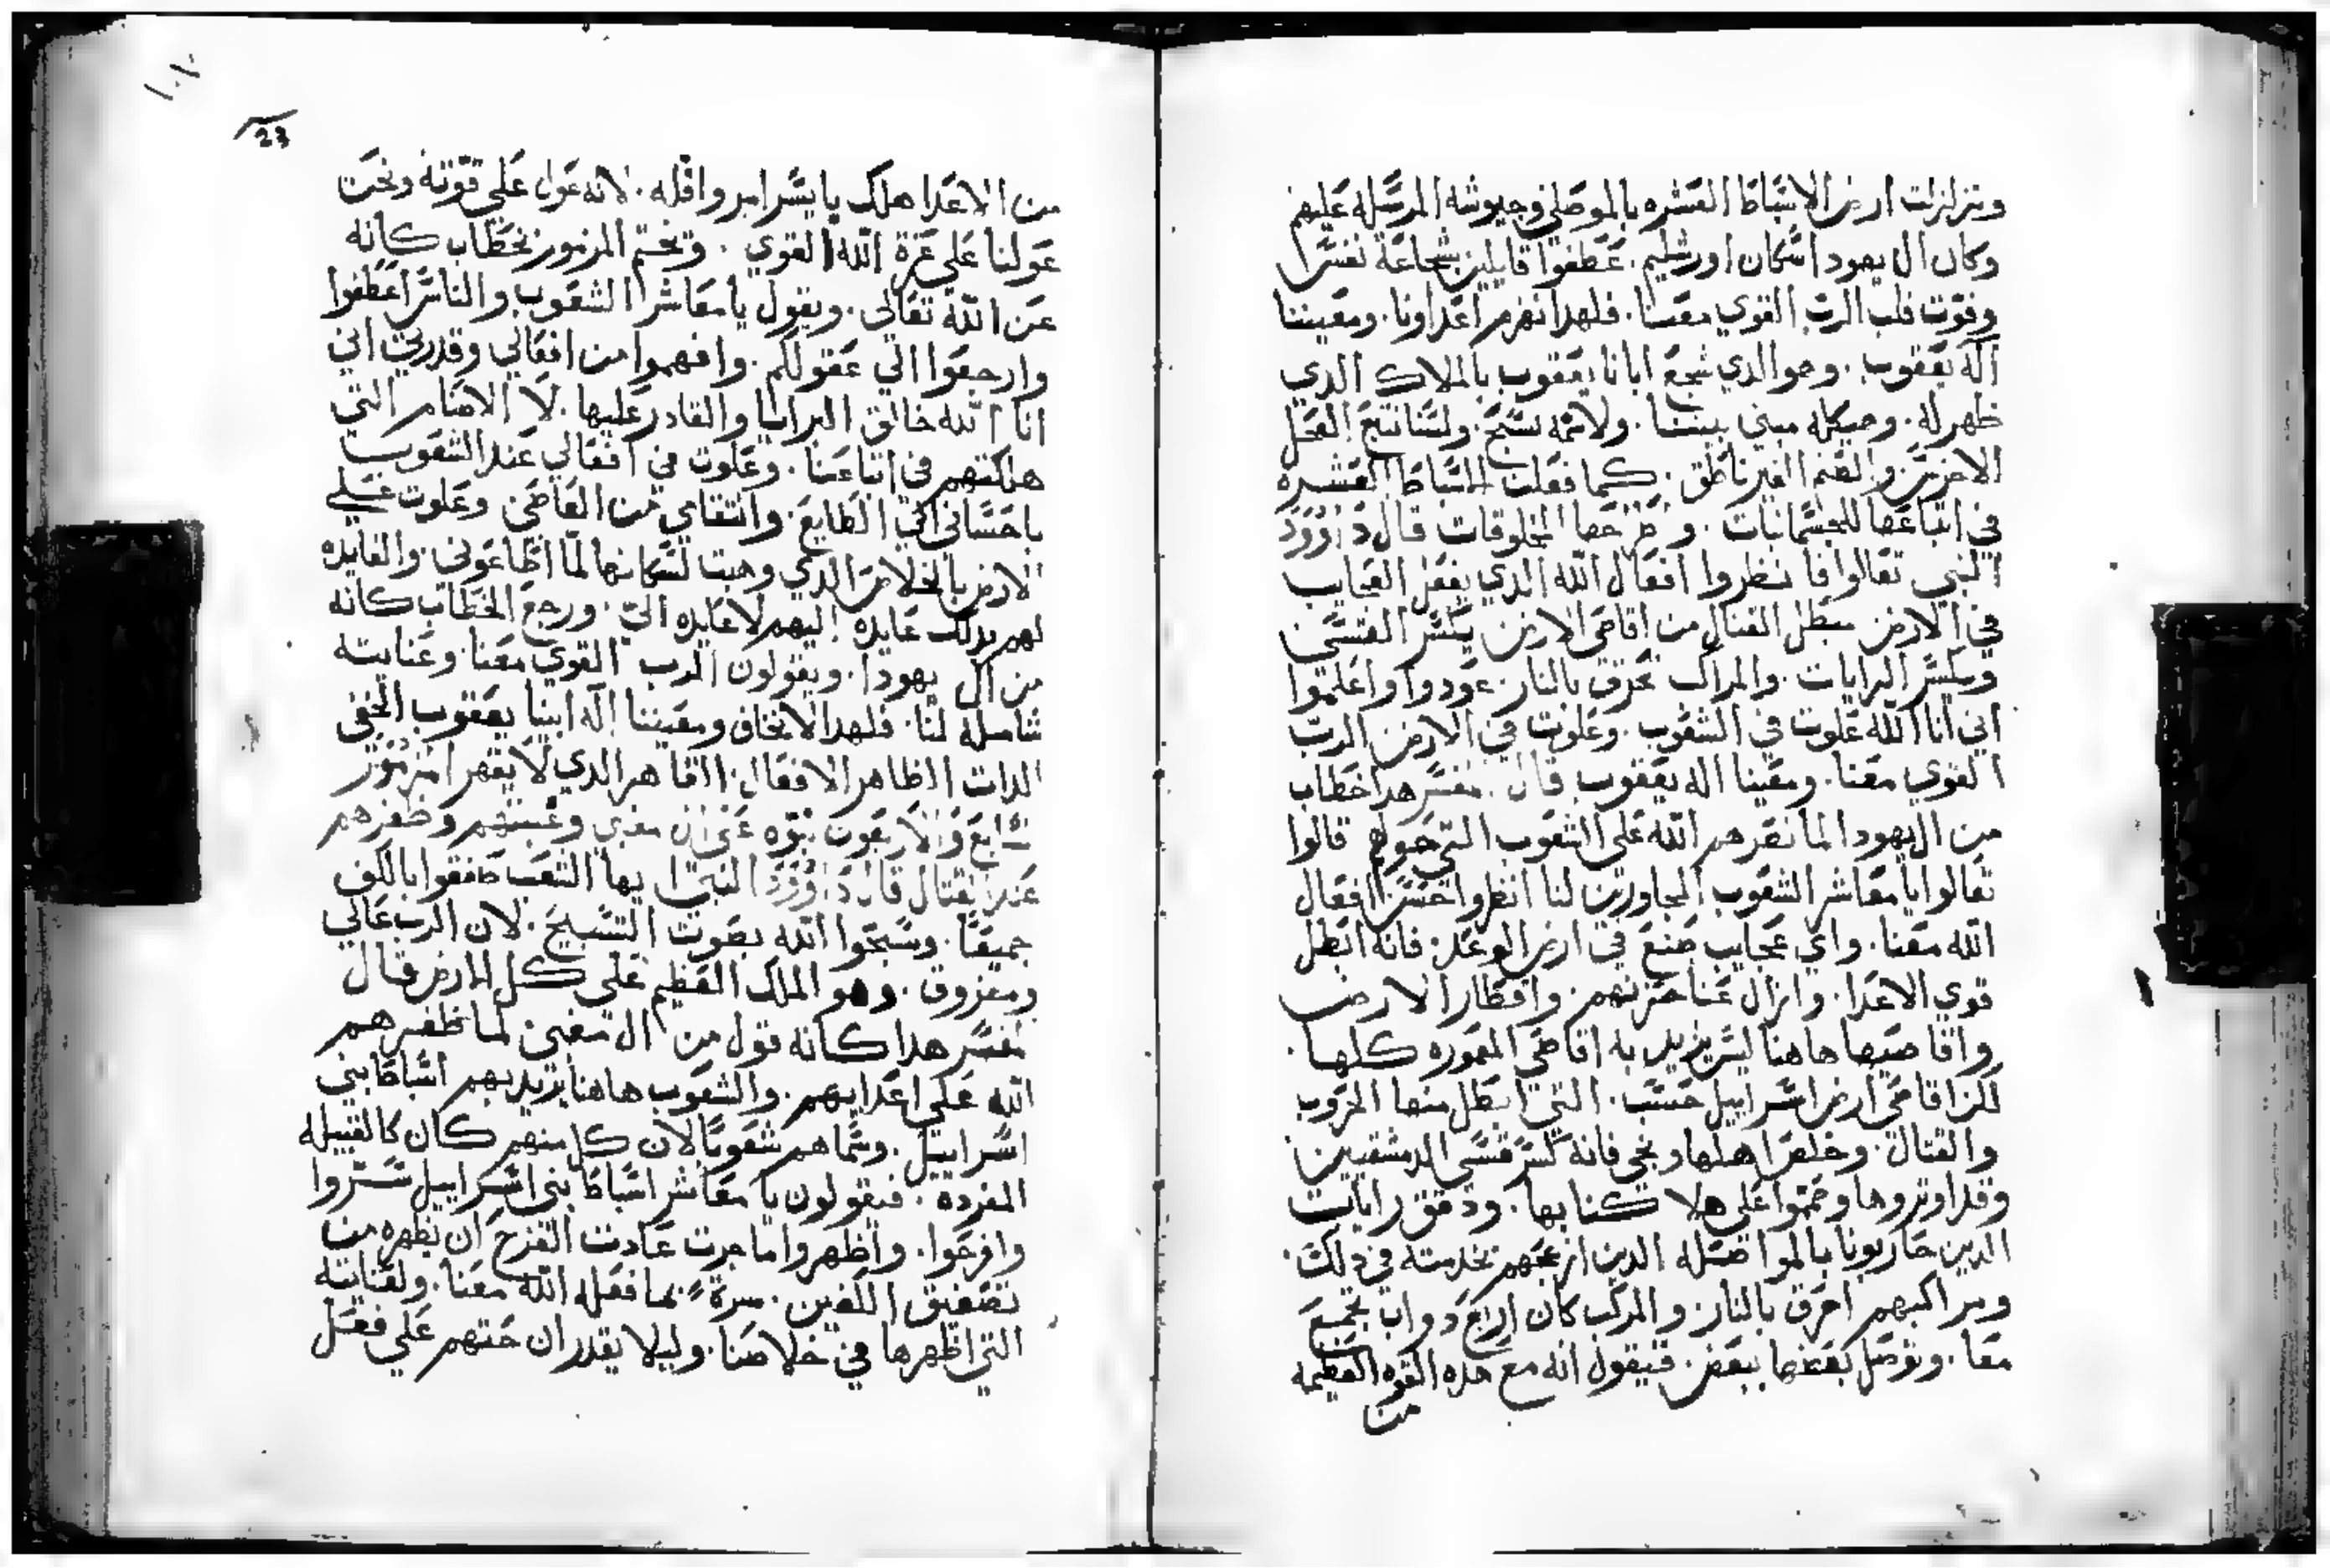 وتزلزلت ارض الاسباط العشره بالموصلي وجيوشه المرسله عليهم
وكان ال يهودا سكان اورشليم. عطفوا قايلين بشجاعة نفس
وقوت قلب الرب القوي معنا. فلهدا نهزم اعداونا. ومعيننا
اله يعقوب. وهو الدي شجع ابانا يعقوب بالملاك الدي
ظهر له. وهيكله مبني بيننا. ولاسمه نسبح. ولسنا نتبع العجل
الاخرس والغنم الغير ناطق. كما فعلت السباط العشره
في اتباعها للجسمانيات. و المخلوقات قال داوود
النبي تعالوا فانظروا افعال الله الدي يفعل العجايب
في الارض مبطل القتال من اقاصي الارض يكسر القسي
ويكسر الرايات. والمراكب تحرق بالنار. عودوا واعلموا
اني انا الله علوت في الشعوب. وعلوت في الارض الرب
القوي معنا. ومعينا اله يعقوب قال مفسر هدا خطاب
من ال يهودا لما نصرهم الله على الشعوب التي حولهم قالوا
تعالوا يا معاشر الشعوب المجاورين لنا انظروا حسن افعال
الله معنا. واي عجايب صنع في ارض الوعد. فانه ابطل
قوي الاعدا. وازال عنا حزبهم. واقطار الارض
واقاصيها هاهنا ليس يريد به اقاصي المعموره كلها.
لكن اقاصي ارض اسراييل حسب. التي ابطل منها الحروب
والقتال. وخلص اهلها ونجي فانه كسر قسي الدمشقيين
وقد اوتروها وصمموا على هلاكنا بها. ودقق رايات
الدين حاربونا بالمواصله الدين ازعجهم بخدمته في دلك.
ومراكبهم احرق بالنار. والمركب كان اربع دواب تجمع
معا. وتوصل بعضها ببعض. فيقول انه مع هده القوه العظيمه
من
23
من الاعدا هلك بايسر امر واقله. لانه عول على قوته ونحن
عولنا على عزة الله القوي. ونختم المزمور بخطاب كانه
عن الله تعالى. ويقول يا معاشر الشعوب والناس اعطفوا
وارجعوا الي عقولكم. وافهموا من افعالي وقدرتي اني
انا الله خالق البرايا والقادر عليها. لا الاصنام التي
هلكتهم في اتباعنا. وعلوت في افعالي عند الشعوب
باحساني الي الطايع. وانتقامي من العاصي وعلوت على
الارض بالخلاص الدي وهبت لسكانها لما اطاعوني. والفايده
لهم بدلك عايده اليهم لا عايده الي. ورجع الخطاب كانه
من ال يهودا. ويقولون الرب القوي معنا. وعنايته
شامله لنا. فلهدا لا نخاف ومعيننا اله ابينا يعقوب الخفي
الدات الظاهر الافعال. القاهر الدي لا يقهر المزمور
السابع والاربعون نبوه عن ال مقبي وغلبتهم وظفرهم
عند القتال قال داوود النبي ايها الشعب صفقوا بالكف
جميعا. وسبحوا الله بصوت التسبيح. لان الرب عالي
ومعزوف. وهو الملك العظيم على كل الارض قال
مفسر هدا كانه قول من ال مقبي لما ظفرهم
الله على اعدايهم. والشعوب هاهنا يريد بهم اسباط بني
اسراييل. وسماهم شعوبا لان كل منهم كان كالقبيله
المفرده. فيقولون يا معاشر اسباط بني اسراييل سروا
وافرحوا. واظهروا ما جرت عادت الفرح ان يظهره من
تصفيق الكفين. سرة بما فعله الله معنا. ولعنايته
التي اظهرها في خلاصنا. وليلا يقدر ان حتهم على فعل